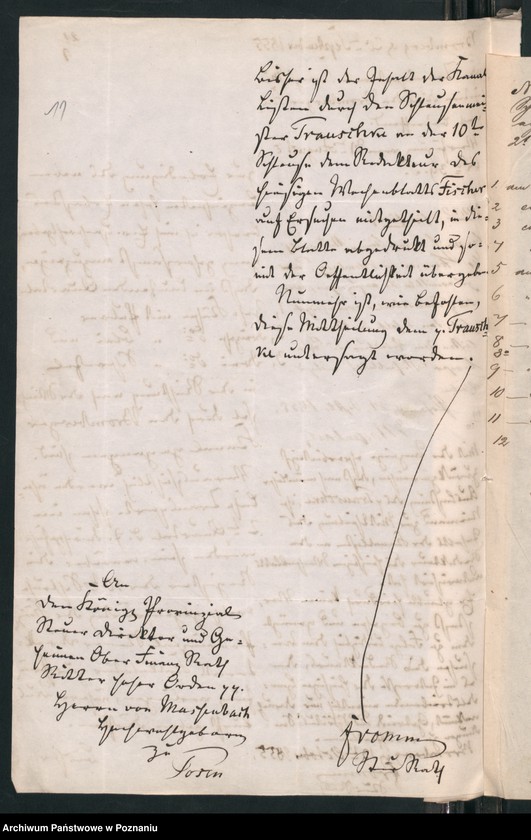 Bisher ist der Inhalt der Kanal
Listen durch den Schleusenmei-
ster Trauschke an der 10te
Schleuse dem Redakteur des
hiesigen Wochenblatts Fischer
auf Ersuchen mitgetheilt, in die-
sem Blatte abgedruckt und so-
mit der Oeffentlichkeit übergeben
Nunmehr ist, wie befohlen,
diese Mittheilung dem p. Trausch-
ke untersagt worden.
An
den Königl Provinzial
Steuer Direktor und Ge-
heimen Ober Finanz Rath
Ritter hoher Orden pp.
Herrn von Massenbach
Hochwohlgeboren
zu
Posen
Fromm
Rath
1
2
3
5
6
7
8
9
10
11
12
Archiwum Państwowe w Poznaniu